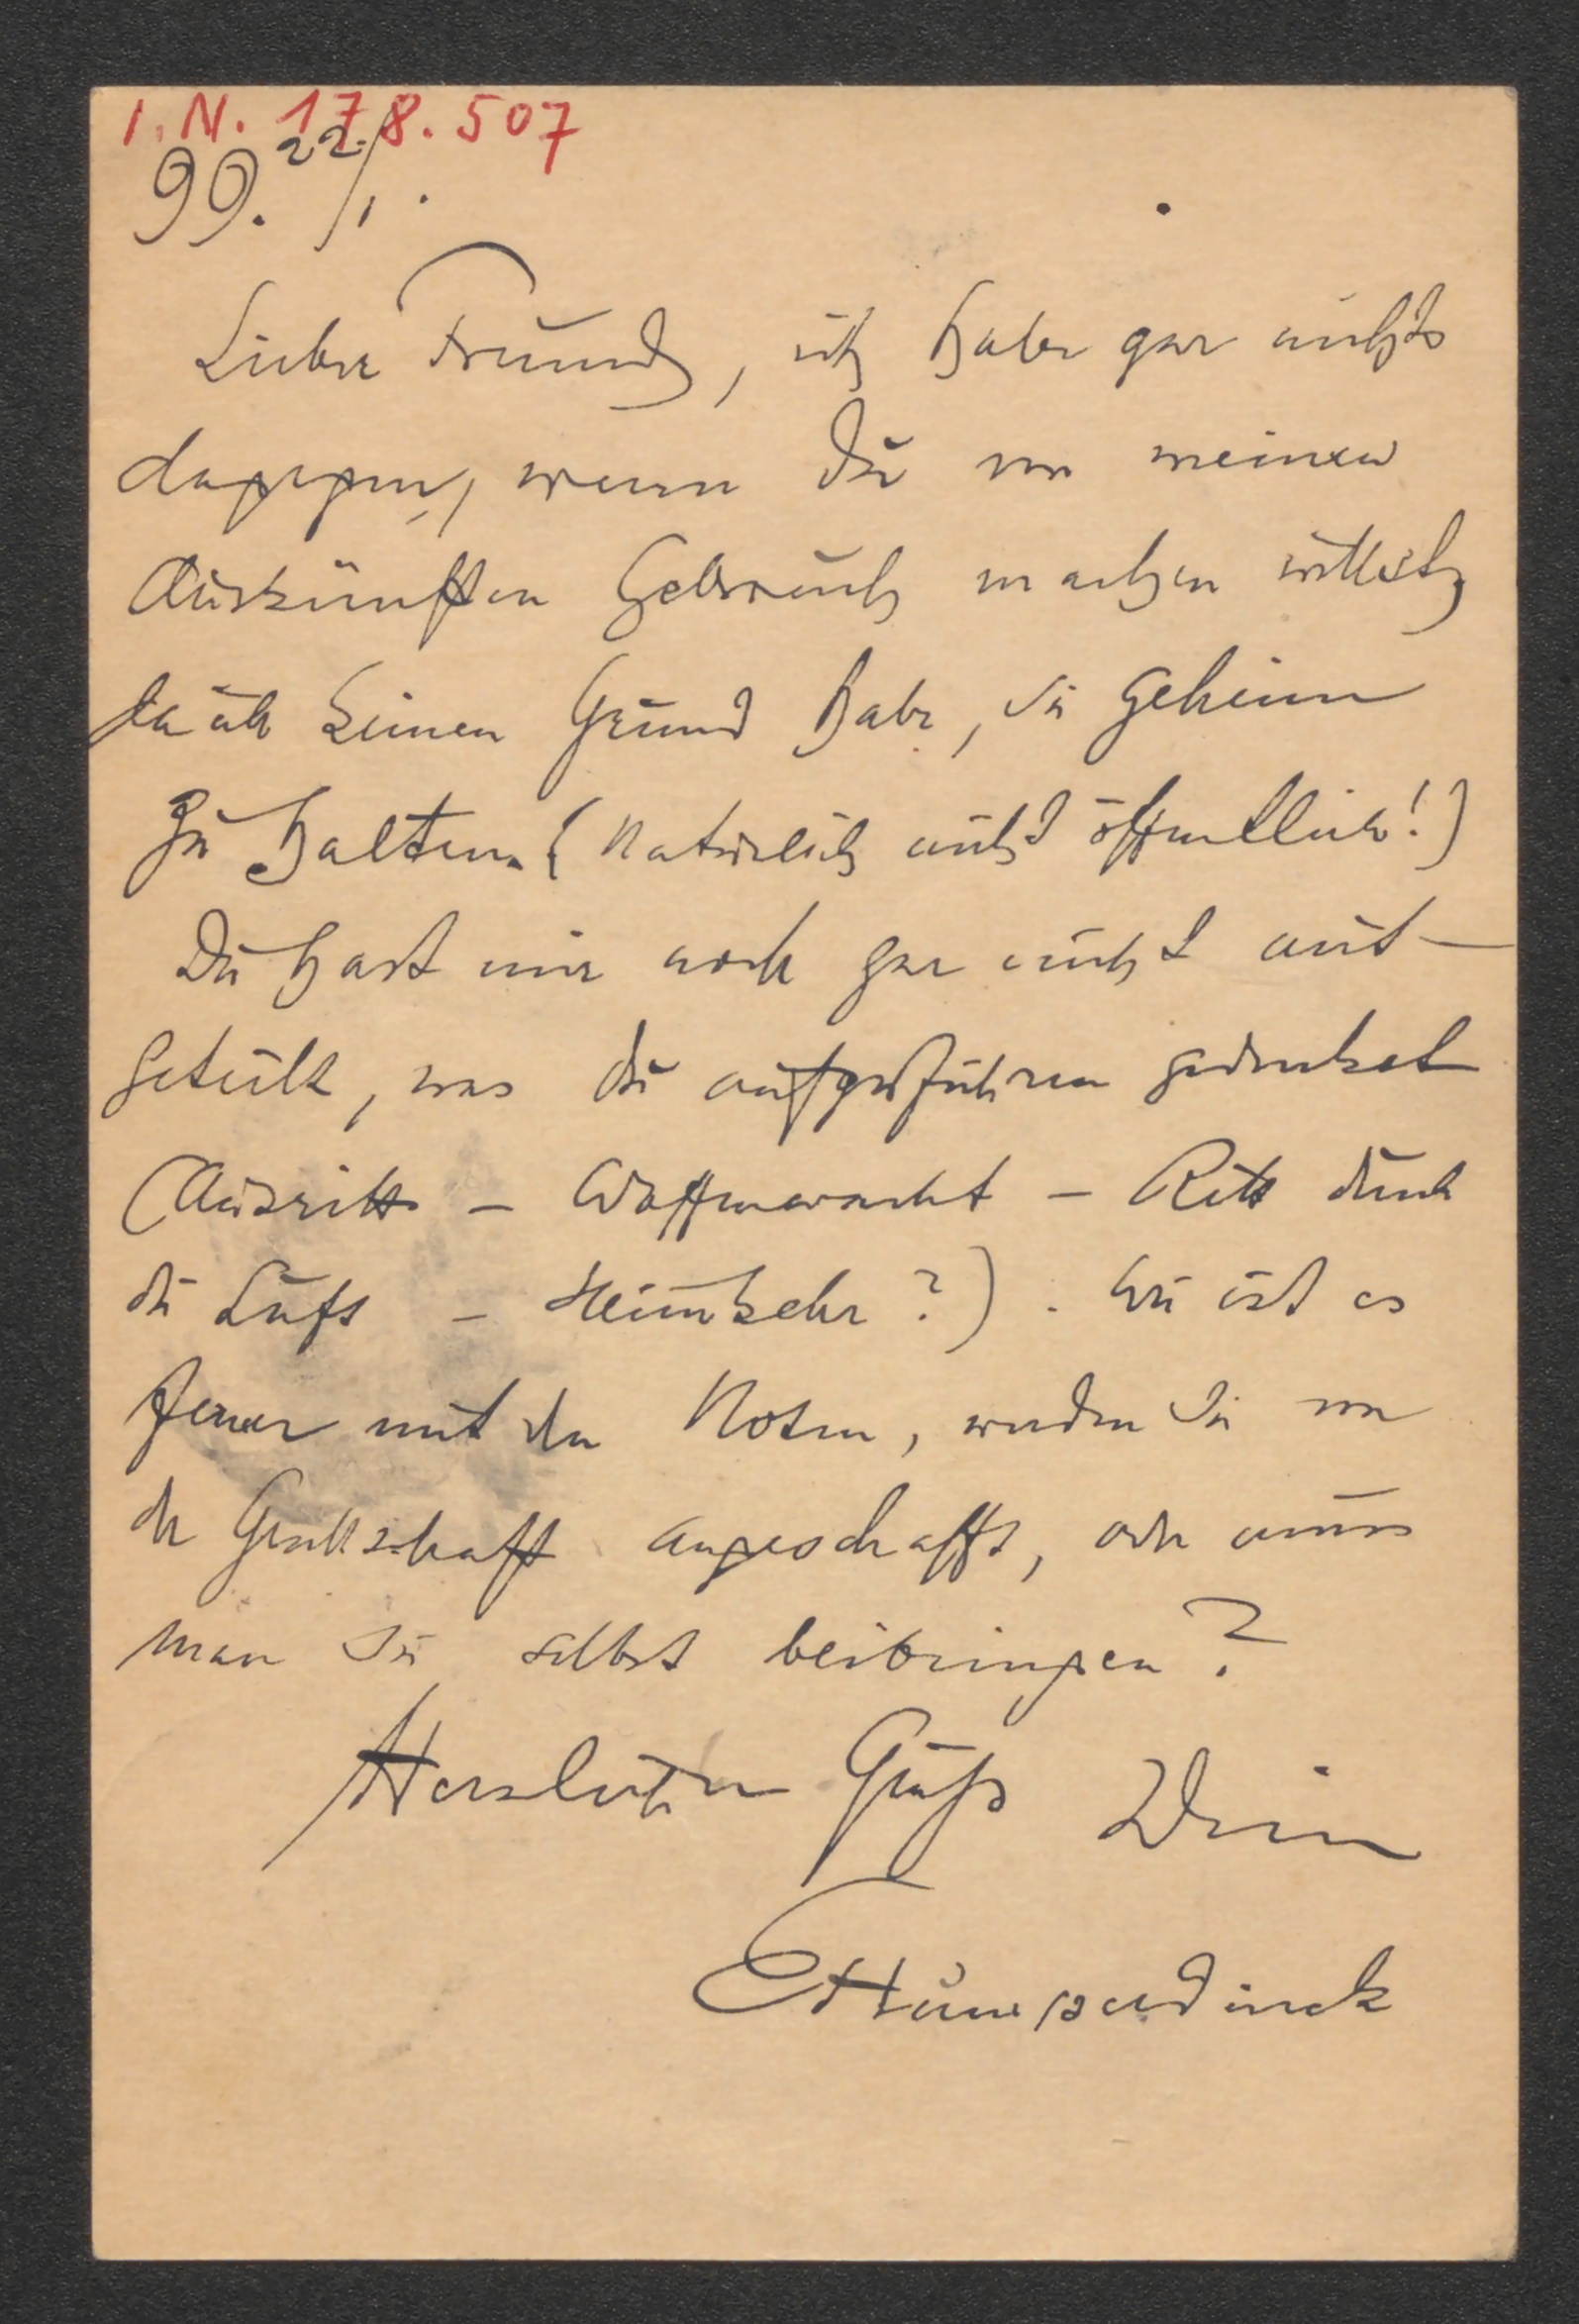 I.N. 178.507
99. 22./1.
Lieber Freund, ich habe gar nichts
dagegen, wenn Du von meinen
Auskünften Gebrauch machen willst,
da ich keinen Grund habe, sie geheim
zu halten. (Natürlich nicht öffentlich!)
Du hast mir noch gar nicht mit-
geteilt, was du aufzuführen gedenkst
(Ausritt – Waffenwacht – Ritt durch
die Luft – Heimkehr?). Wie ist es
ferner mit den Noten, werden sie von
der Gesellschaft angeschafft, oder muss
man sie selbst beibringen?
Herzlichen Gruß Dein
EHumperdinck